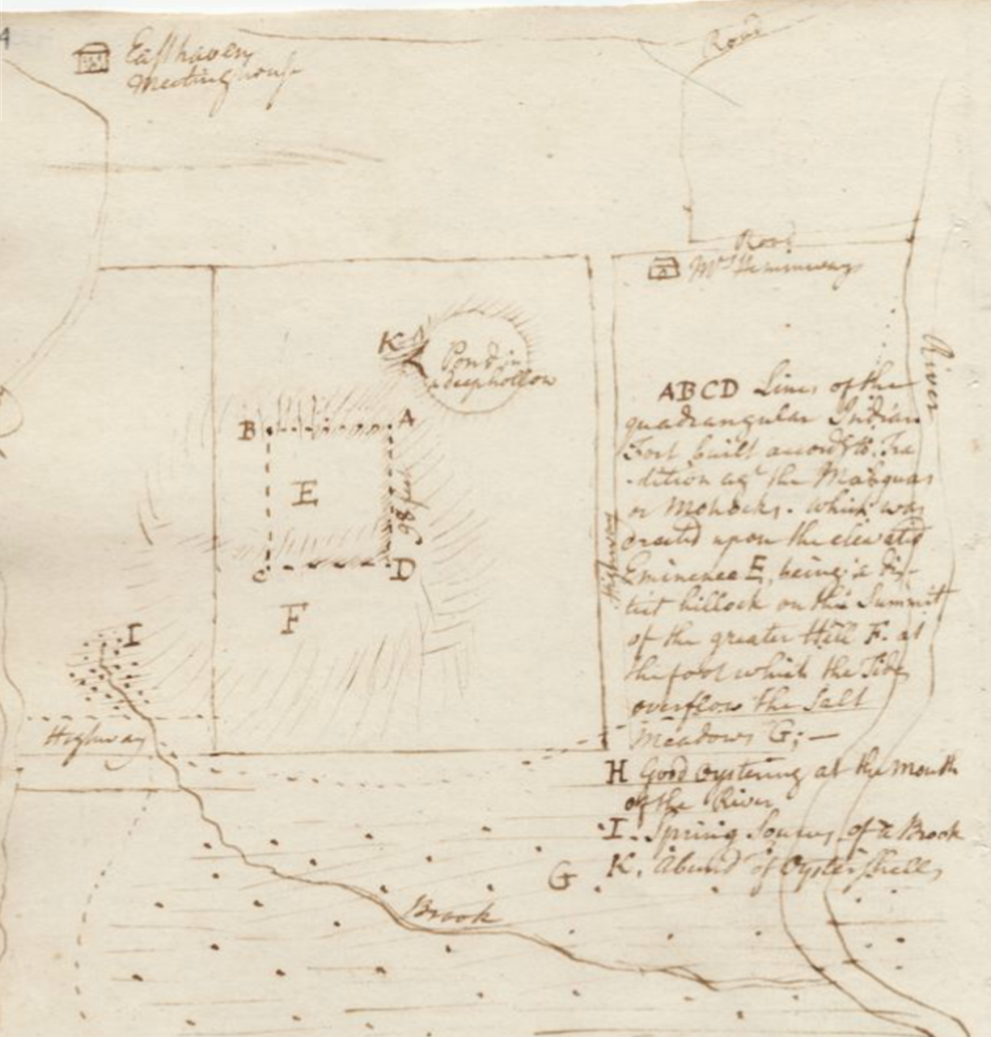 4
Easthaven
Meetinghouse
Road
Road
Mr Hemmways
River
K
Pond in
a deep hollow
B A
E
98 feet
C D
F
I
Highway
Highway
ABCD Lines of the
quadrangular Indian
Fort built accordg to Tra
-dition agt the Mohquas
or Mohocks. which was
erected upon the elevated
Eminence E, being a dis-
tict hillock on the Summit
of the greater Hill F. at
the foot which the Tide
overflow the Salt
Meadows G; —
H Good Oystering at the Mouth
of the River
I. Spring Sources of a Brook
K. Abund of Oystershells
G
Brook